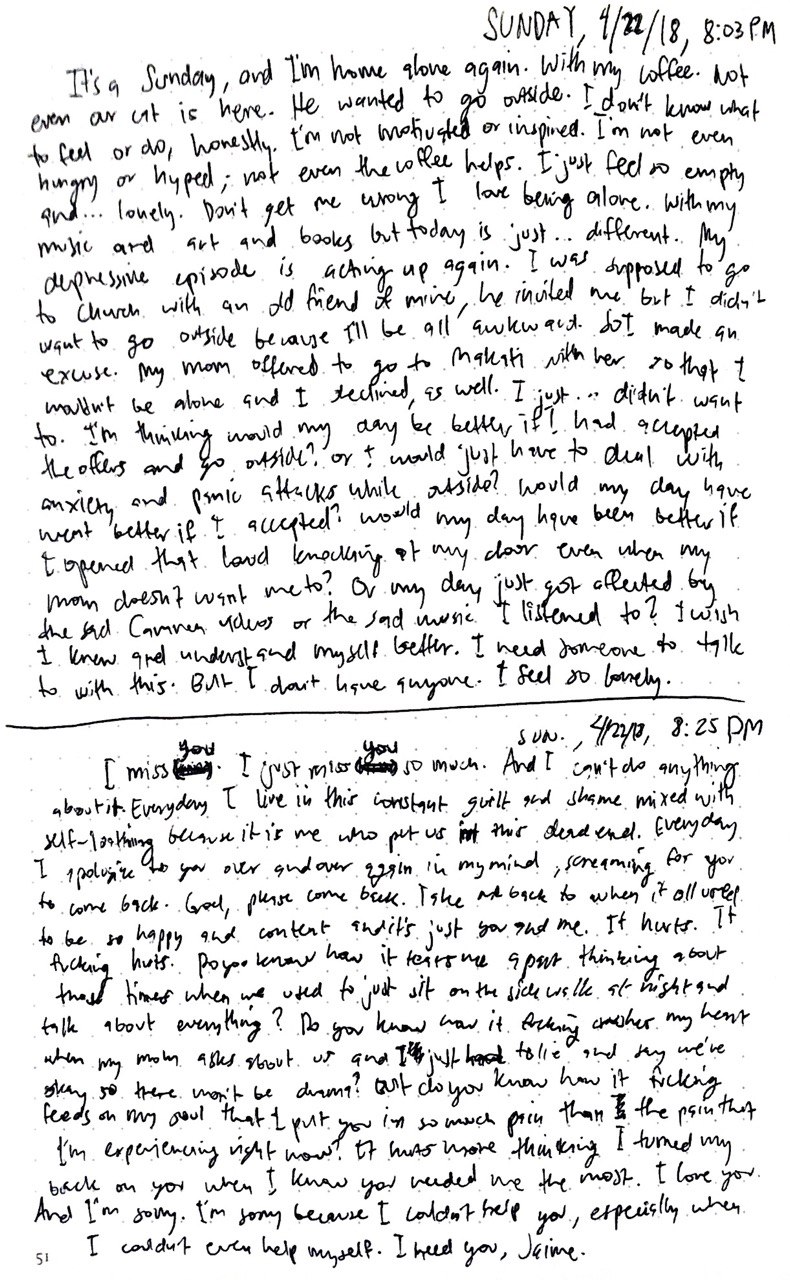 SUNDAY, 4/22/18, 8:03 PM
It's a Sunday, and I'm home alone again. With my coffee. Not
even our cat is here. He wanted to go outside. I don't know what
to feel or do, honestly. I'm not motivated or inspired. I'm not even
hungry or hyped; not even the coffee helps. I just feel so empty
and... lonely. Don't get me wrong I love being alone. With my
music and art and books but today is just... different. My
depressive episode is acting up again. I was supposed to go
to church with an old friend of mine, he invited me but I didn't
want to go outside because I'll be all awkward. So I made an
excuse. My mom offered to go to Makati with her so that I
wouldn't be alone and I declined, as well. I just... didn't want
to. I'm thinking would my day be better if I had accepted
the offers and go outside? or I would just have to deal with
anxiety and panic attacks while outside? Would my day have
went better if I accepted? Would my day have been better if
I opened that loud knocking at my door even when my
mom doesn't want me to? Or my day just got affected by
the sad videos or the sad music I listened to? I wish
I knew and understand myself better. I need someone to talk
to with this. But I don't have anyone. I feel so lonely.
SUN., 4/22/18, 8:25 PM
I miss you. I just miss you so much. And I can't do anything
about it. Everyday I live in this constant guilt and shame mixed with
self-loathing because it is me who put us in this dead end. Everyday
I apologize to you over and over again in my mind, screaming for you
to come back. God, please come back. Take me back to when it all used
to be so happy and content and it's just you and me. It hurts. It
fucking hurts. Do you know how it tears me apart thinking about
those times when we used to just sit on the sidewalk at night and
talk about everything? Do you know how it fucking crushes my heart
when my mom asks about us and I just to lie and say we're
okay so there won't be drama? But do you know how it fucking
feeds on my soul that I put you in so much pain than the pain that
I'm experiencing right now? It hurts more thinking I turned my
back on you when I know you needed me the most. I love you.
And I'm sorry. I'm sorry because I couldn't help you, especially when
I couldn't even help myself. I need you, Jaime.
51